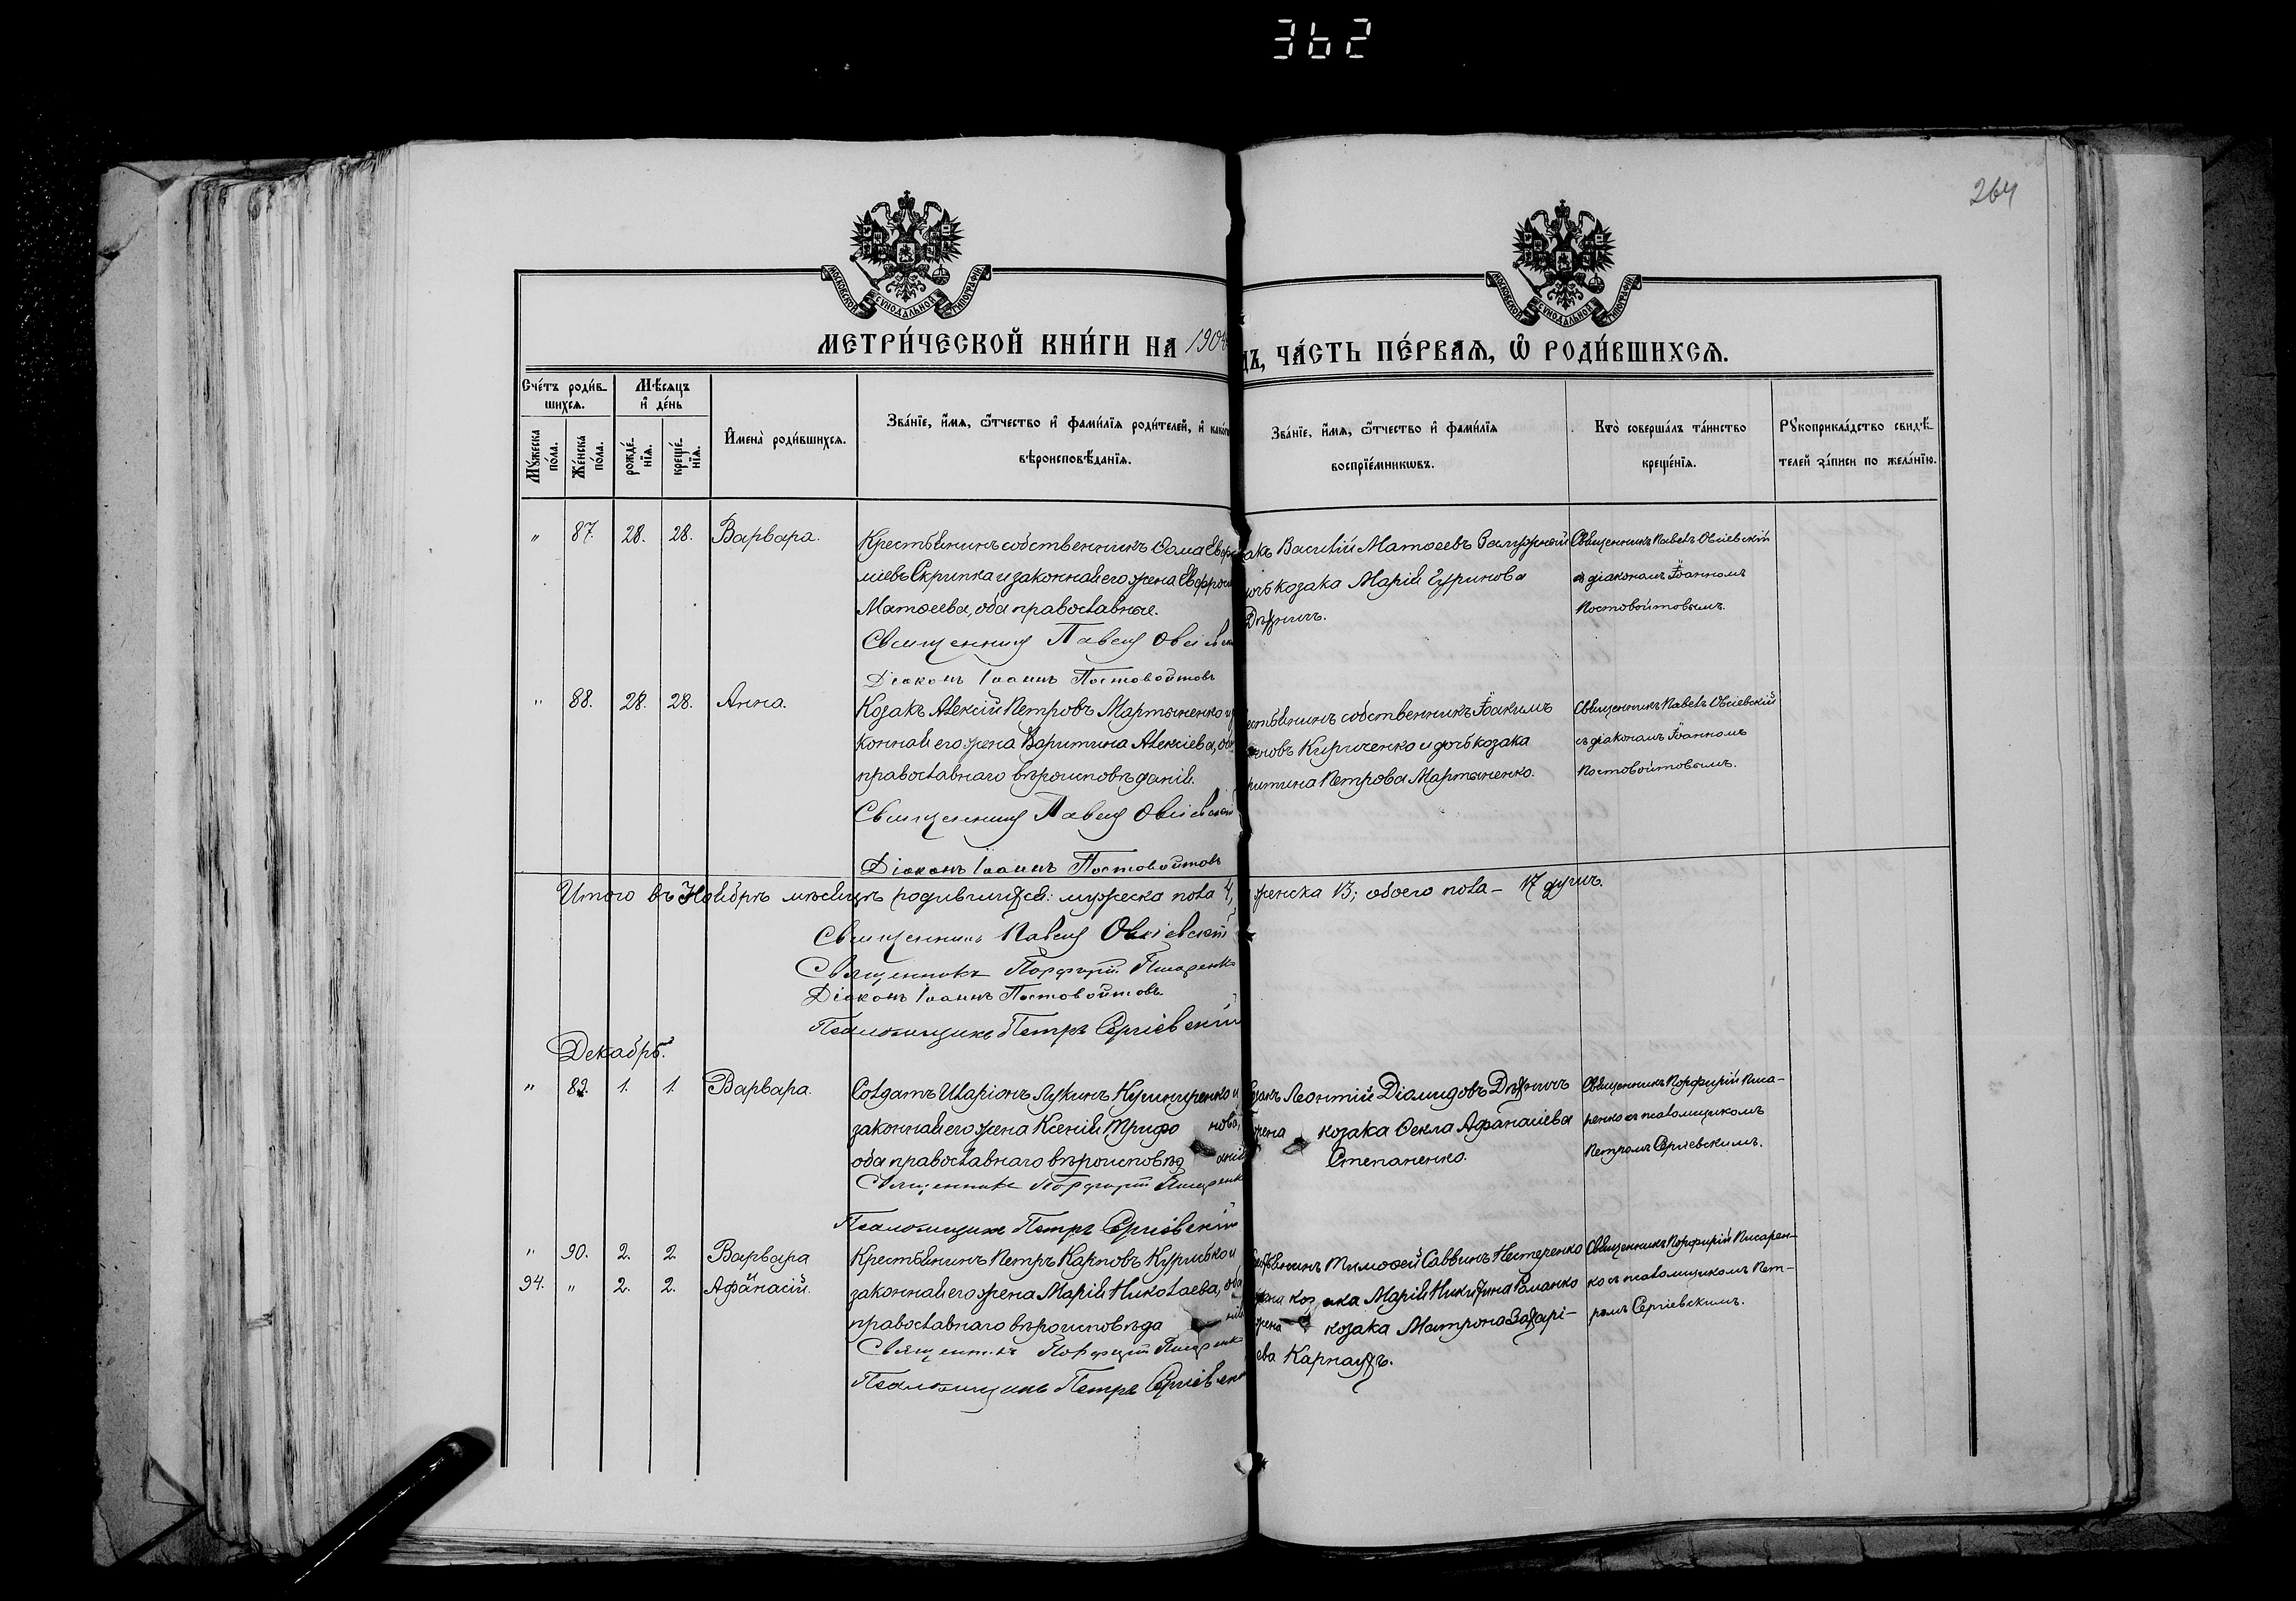 362
264
МОСКОВСКОЙ СѴНОДАЛЬНОЙ ТИПОГРАФІИ
МОСКОВСКОЙ СѴНОДАЛЬНОЙ ТИПОГРАФІИ
МЕТРИ́ЧЕСКОЙ КНИ́ГИ НА 190
ДЪ, ЧА́СТЬ ПЕ́РВАЯ, Ѡ РОДИ́ВШИХСЯ.
Сче́тъ роди́в-
шихся.
Мѣ́сяцъ
и де́нь
Му́жеска по́ла.
Же́нска по́ла.
рожде́нїя.
креще́нїя.
Имена̀ роди́вшихся.
Зва́нїе, и́мя, ѻ҆́тчество и фами́лїя роди́телей, и како́г
вѣроисповѣ́данїя.
Зва́нїе, и́мя, ѻ҆́тчество и фами́лїя
воспрїе́мниковъ.
Кто̀ соверша́лъ та́инство
креще́нїя.
Рꙋкоприкла́дство свидѣ́-
телей за́писи по жела́нїю.
" 87. 28. 28. Варвара.
Крестьянинъ собственникъ Ѳома Евфи
міевъ Скрипка и законная его жена Евфрос
Матѳеева, оба православные.
Священникъ Павелъ Овсіевск
Діаконъ Іоаннъ Постовойтовъ
акъ Василій Матѳеевъ Залужный
дочь козака Марія Гуринова
Дѣхничъ.
Священникъ Павелъ Овсіевскій
съ діакономъ Іоанномъ
Постовойтовымъ.
" 88. 28. 28. Анна.
Козакъ Алексій Петровъ Мартыненко и
конная его жена Харитина Алексіева, оба
православнаго вѣроисповѣданія.
Священникъ Павелъ Овсіевскій
Діаконъ Іоаннъ Постовойтовъ
естьянинъ собственникъ Іоакимъ
новъ Кириченко и дочь козака
ритина Петрова Мартыненко.
Священникъ Павелъ Овсіевскій
съ діакономъ Іоанномъ
Постовойтовымъ.
Итого въ Ноябрѣ мѣсяцѣ родившихся: мужеска пола 4, женска 13; обоего пола – 17 душъ.
Священникъ Павелъ Овсіевскій
Священникъ Порфирій Писаренко
Діаконъ Іоаннъ Постовойтовъ.
Псаломщикъ Петръ Сергіевскій
Декабрь.
" 89. 1. 1. Варвара.
Солдатъ Иларіонъ Лукинъ Кушниренко и
законная его жена Ксенія Трифо нова,
оба православнаго вѣроисповѣд анія
Священникъ Порфирій Писаренк
Псаломщикъ Петръ Сергіевскій
козакъ Леонтій Діомидовъ Дѣхничъ
жена козака Ѳекла Афанасіева
Степаненко.
Священникъ Порфирій Писа-
ренко съ псаломщикомъ
Петромъ Сергіевскимъ.
" 90. 2. 2. Варвара
94. " 2. 2. Афанасій.
Крестьянинъ Петръ Карповъ Курисько и
законная его жена Марія Николаева, оба
православнаго вѣроисповѣда нія
Священникъ Порфирій Писаренк
Псаломщикъ Петръ Сергіевск
Тимоѳей Саввинъ Нестеренко
жена коз ака Марія Никитина Романко
жена козака Матрона Захарі-
ева Карпаухъ.
Священникъ Порфирій Писарен-
ко съ псаломщикомъ Пет-
ромъ Сергіевскимъ.